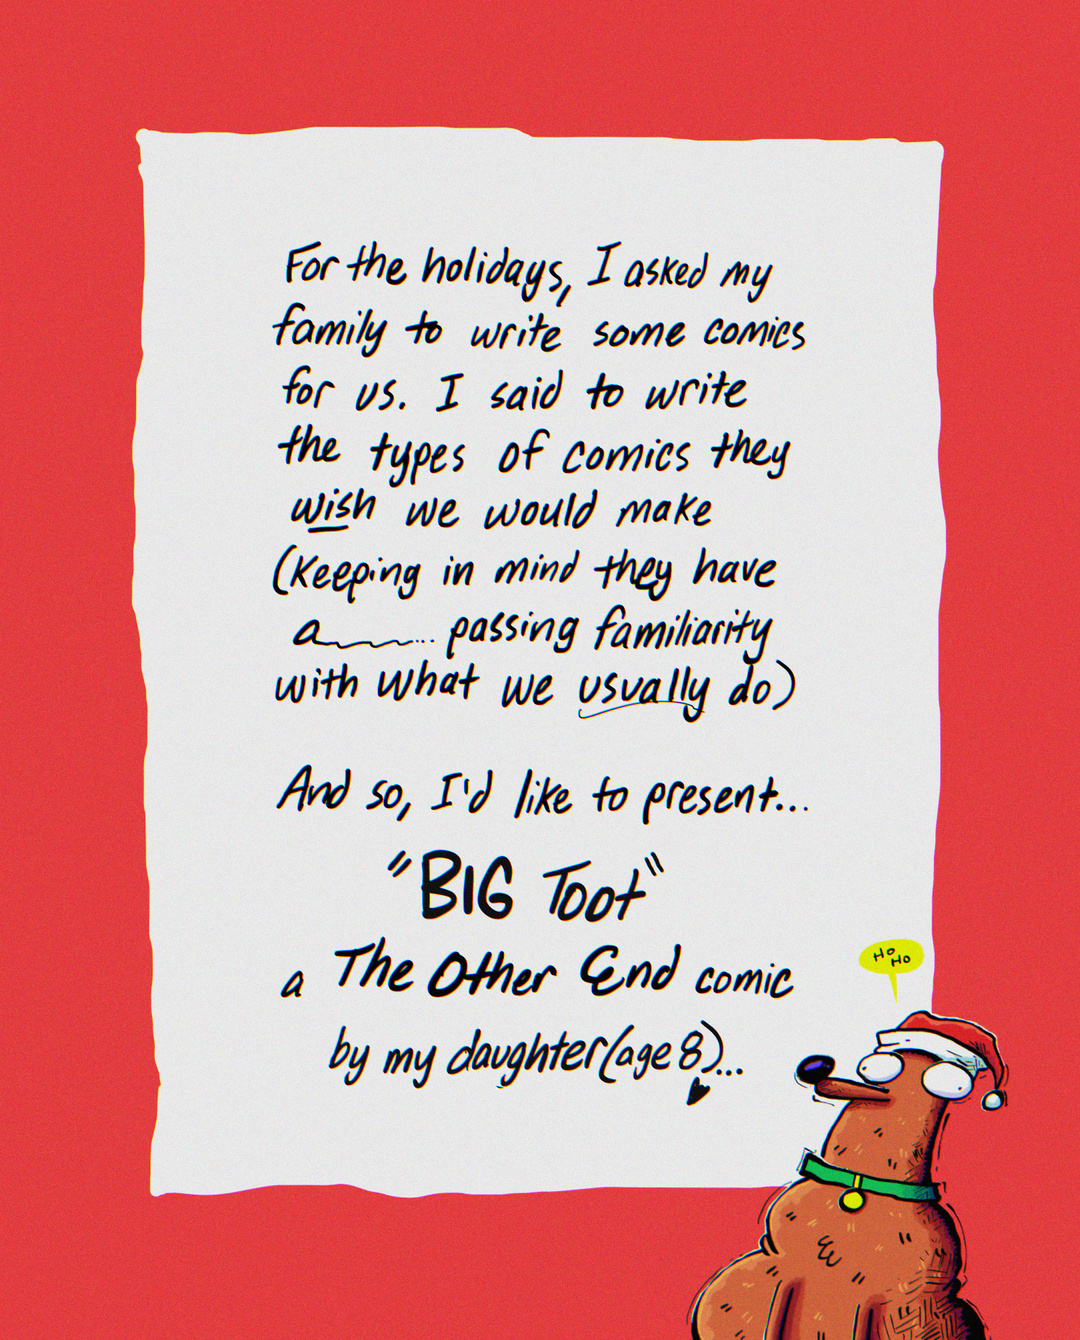 For the holidays, I asked my
family to write some comics
for us. I said to write
the types of comics they
wish we would make
(Keeping in mind they have
a... passing familiarity
with what we usually do)
And so, I'd like to present...
"BIG Toot"
a The Other End comic
by my daughter (age 8)...
HO
HO